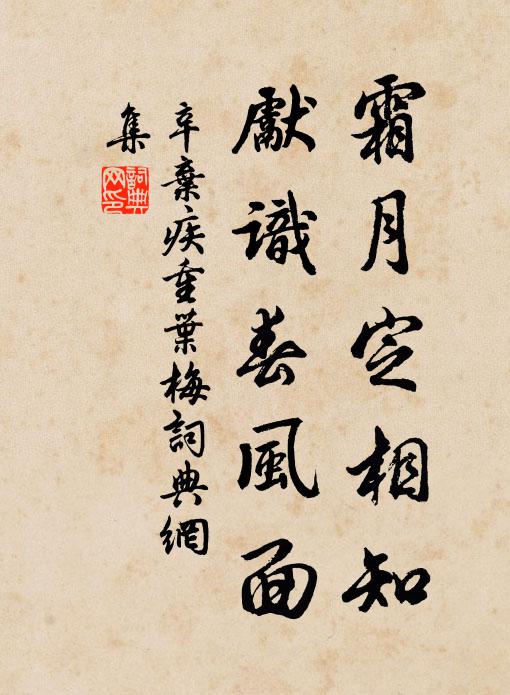 霜月定相知
獻識春風面
辛棄疾重葉梅詞典網
集
詞典
网印